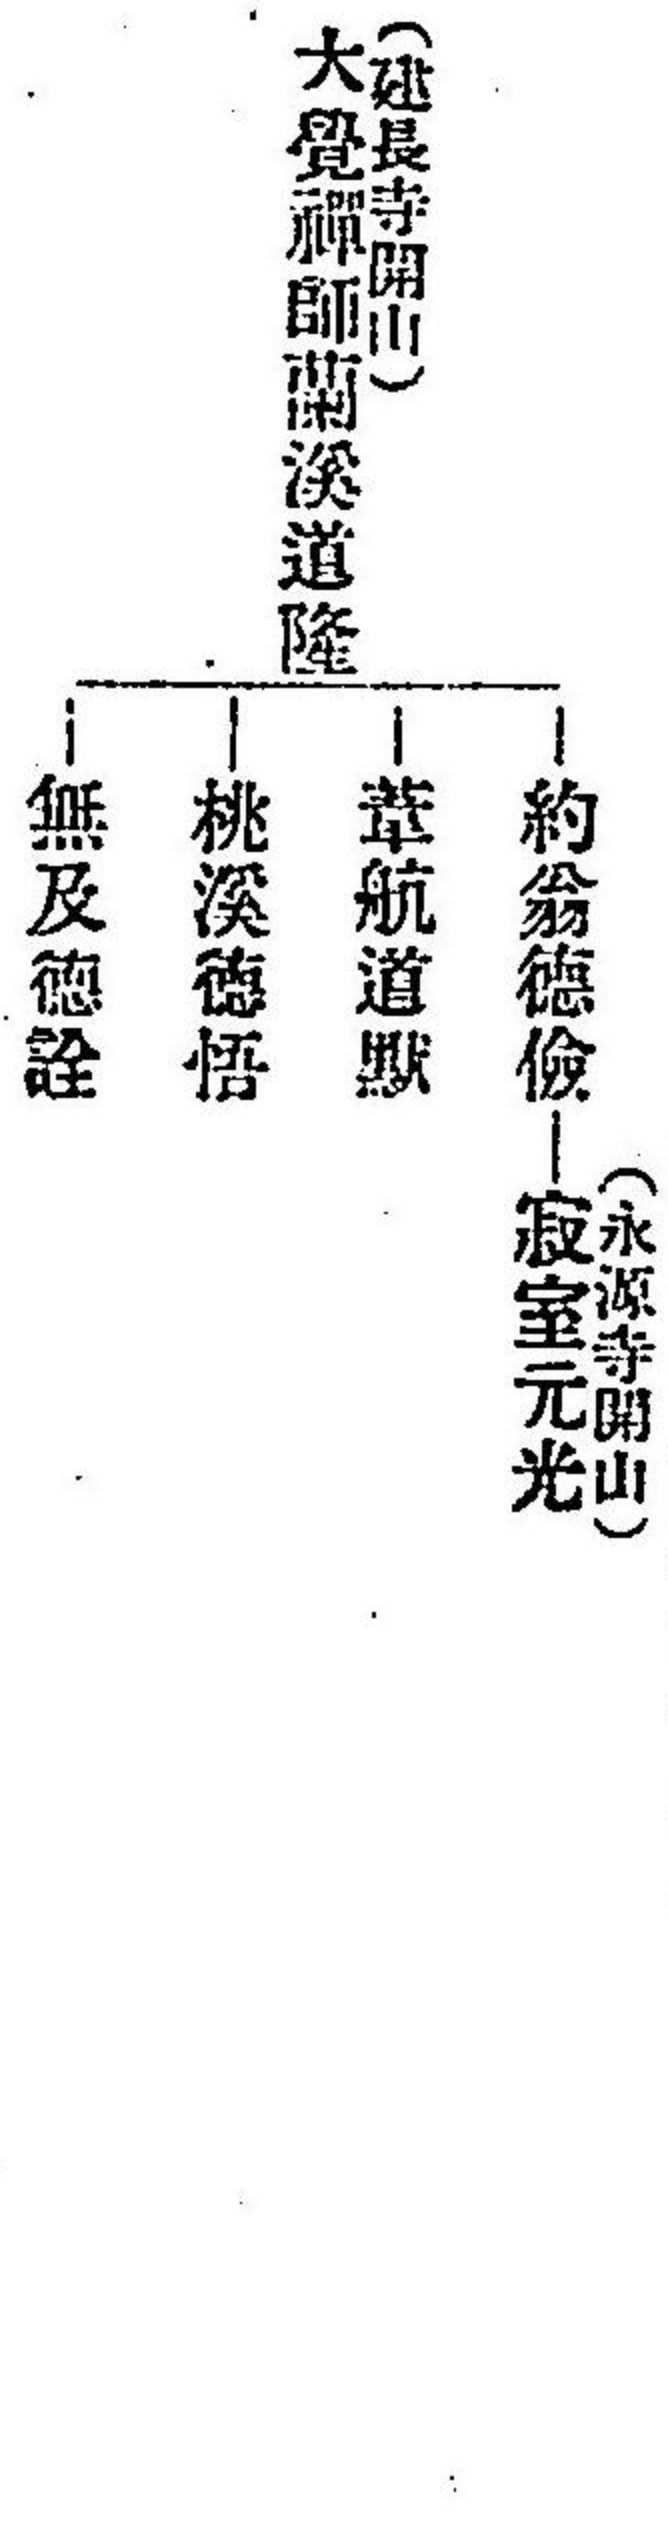 （建長寺開山）
大覺禪師蘭溪道隆
約翁德儉
（永源寺開山）
寂室元光
葦航道默
桃溪德悟
無及德詮